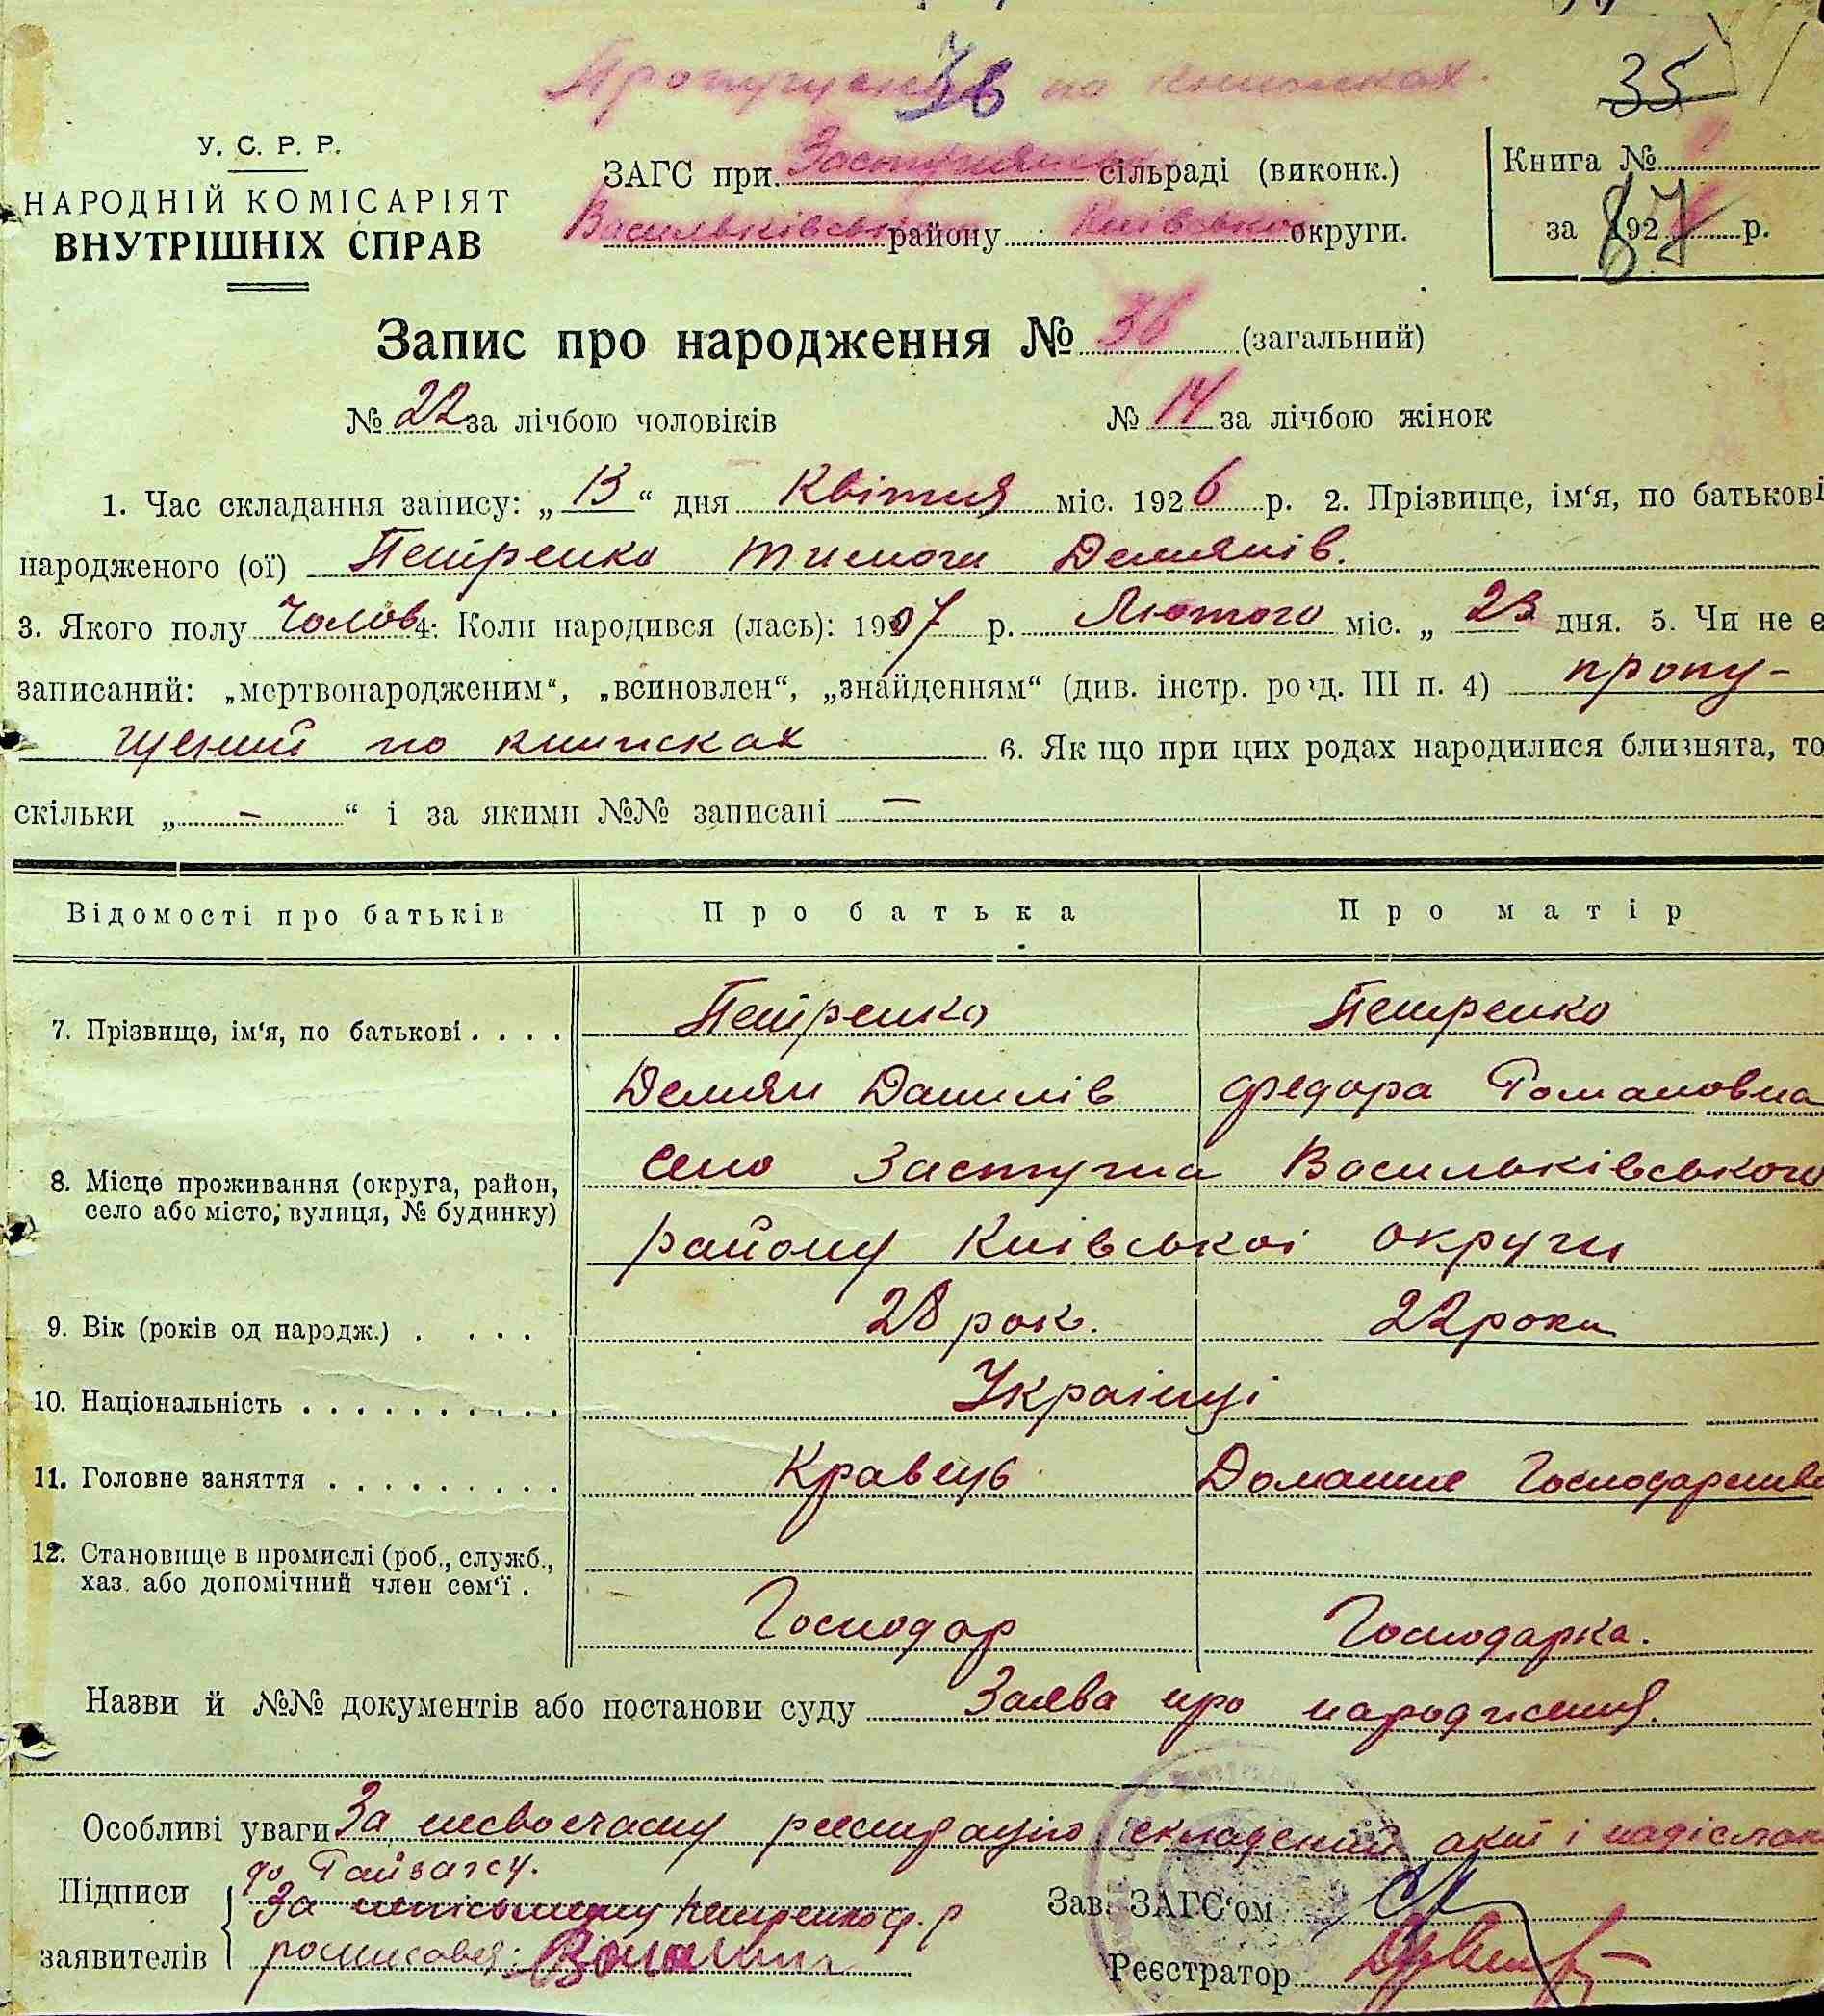 Пропущений по книжках.
36
35
У. С. Р. Р.
НАРОДНІЙ КОМІСАРІЯТ
ВНУТРІШНІХ СПРАВ
ЗАГС при сільраді (виконк.)
Васильківськ району Київської округи.
Книга №
за 192 р.
87
Запис про народження № 36 (загальний)
№ 22 за лічбою чоловіків № 14 за лічбою жінок
1. Час складання запису: „ 13 “ дня Квітня міс. 1926 р. 2. Прізвище, ім‘я, по батькові
народженого (ої) Петренко Тимоги Демянів.
3. Якого полу Чолов 4: Коли народився (лась): 1907 р. Лютого міс. „ 23 дня. 5. Чи не є
записаний: „мертвонародженим“, „всиновлен“, „знайденням“ (див. інстр. розд. III п. 4) пропу-
щений по книжках 6. Як що при цих родах народилися близнята, то
скільки „ – “ і за якими №№ записані –
Відомості про батьків Про батька Про матір
7. Прізвище, ім‘я, по батькові . . . . Петренко Петренко
Демян Данилів Федора Романовна
8. Місце проживання (округа, район,
село або місто, вулиця, № будинку)
село Застугна Васильківського
району Київської округи
9. Вік (років од народж.) . . . . 28 рок. 22 роки
10. Національність . . . . . . . . . . Українці
11. Головне заняття . . . . . . . . . Кравець Домашнє Господарство
12. Становище в промислі (роб., служб.,
хаз. або допомічний член сем‘ї .
Господар Господарка.
Назви й №№ документів або постанови суду Заява про народження.
Особливі уваги За несвоєчасну реєстрацію складений акт і надіслан
до Райзагсу.
Підписи
заявителів
За неписьменну Петренко Ф. Р
росписався:
Зав. ЗАГС‘ом
Реєстратор